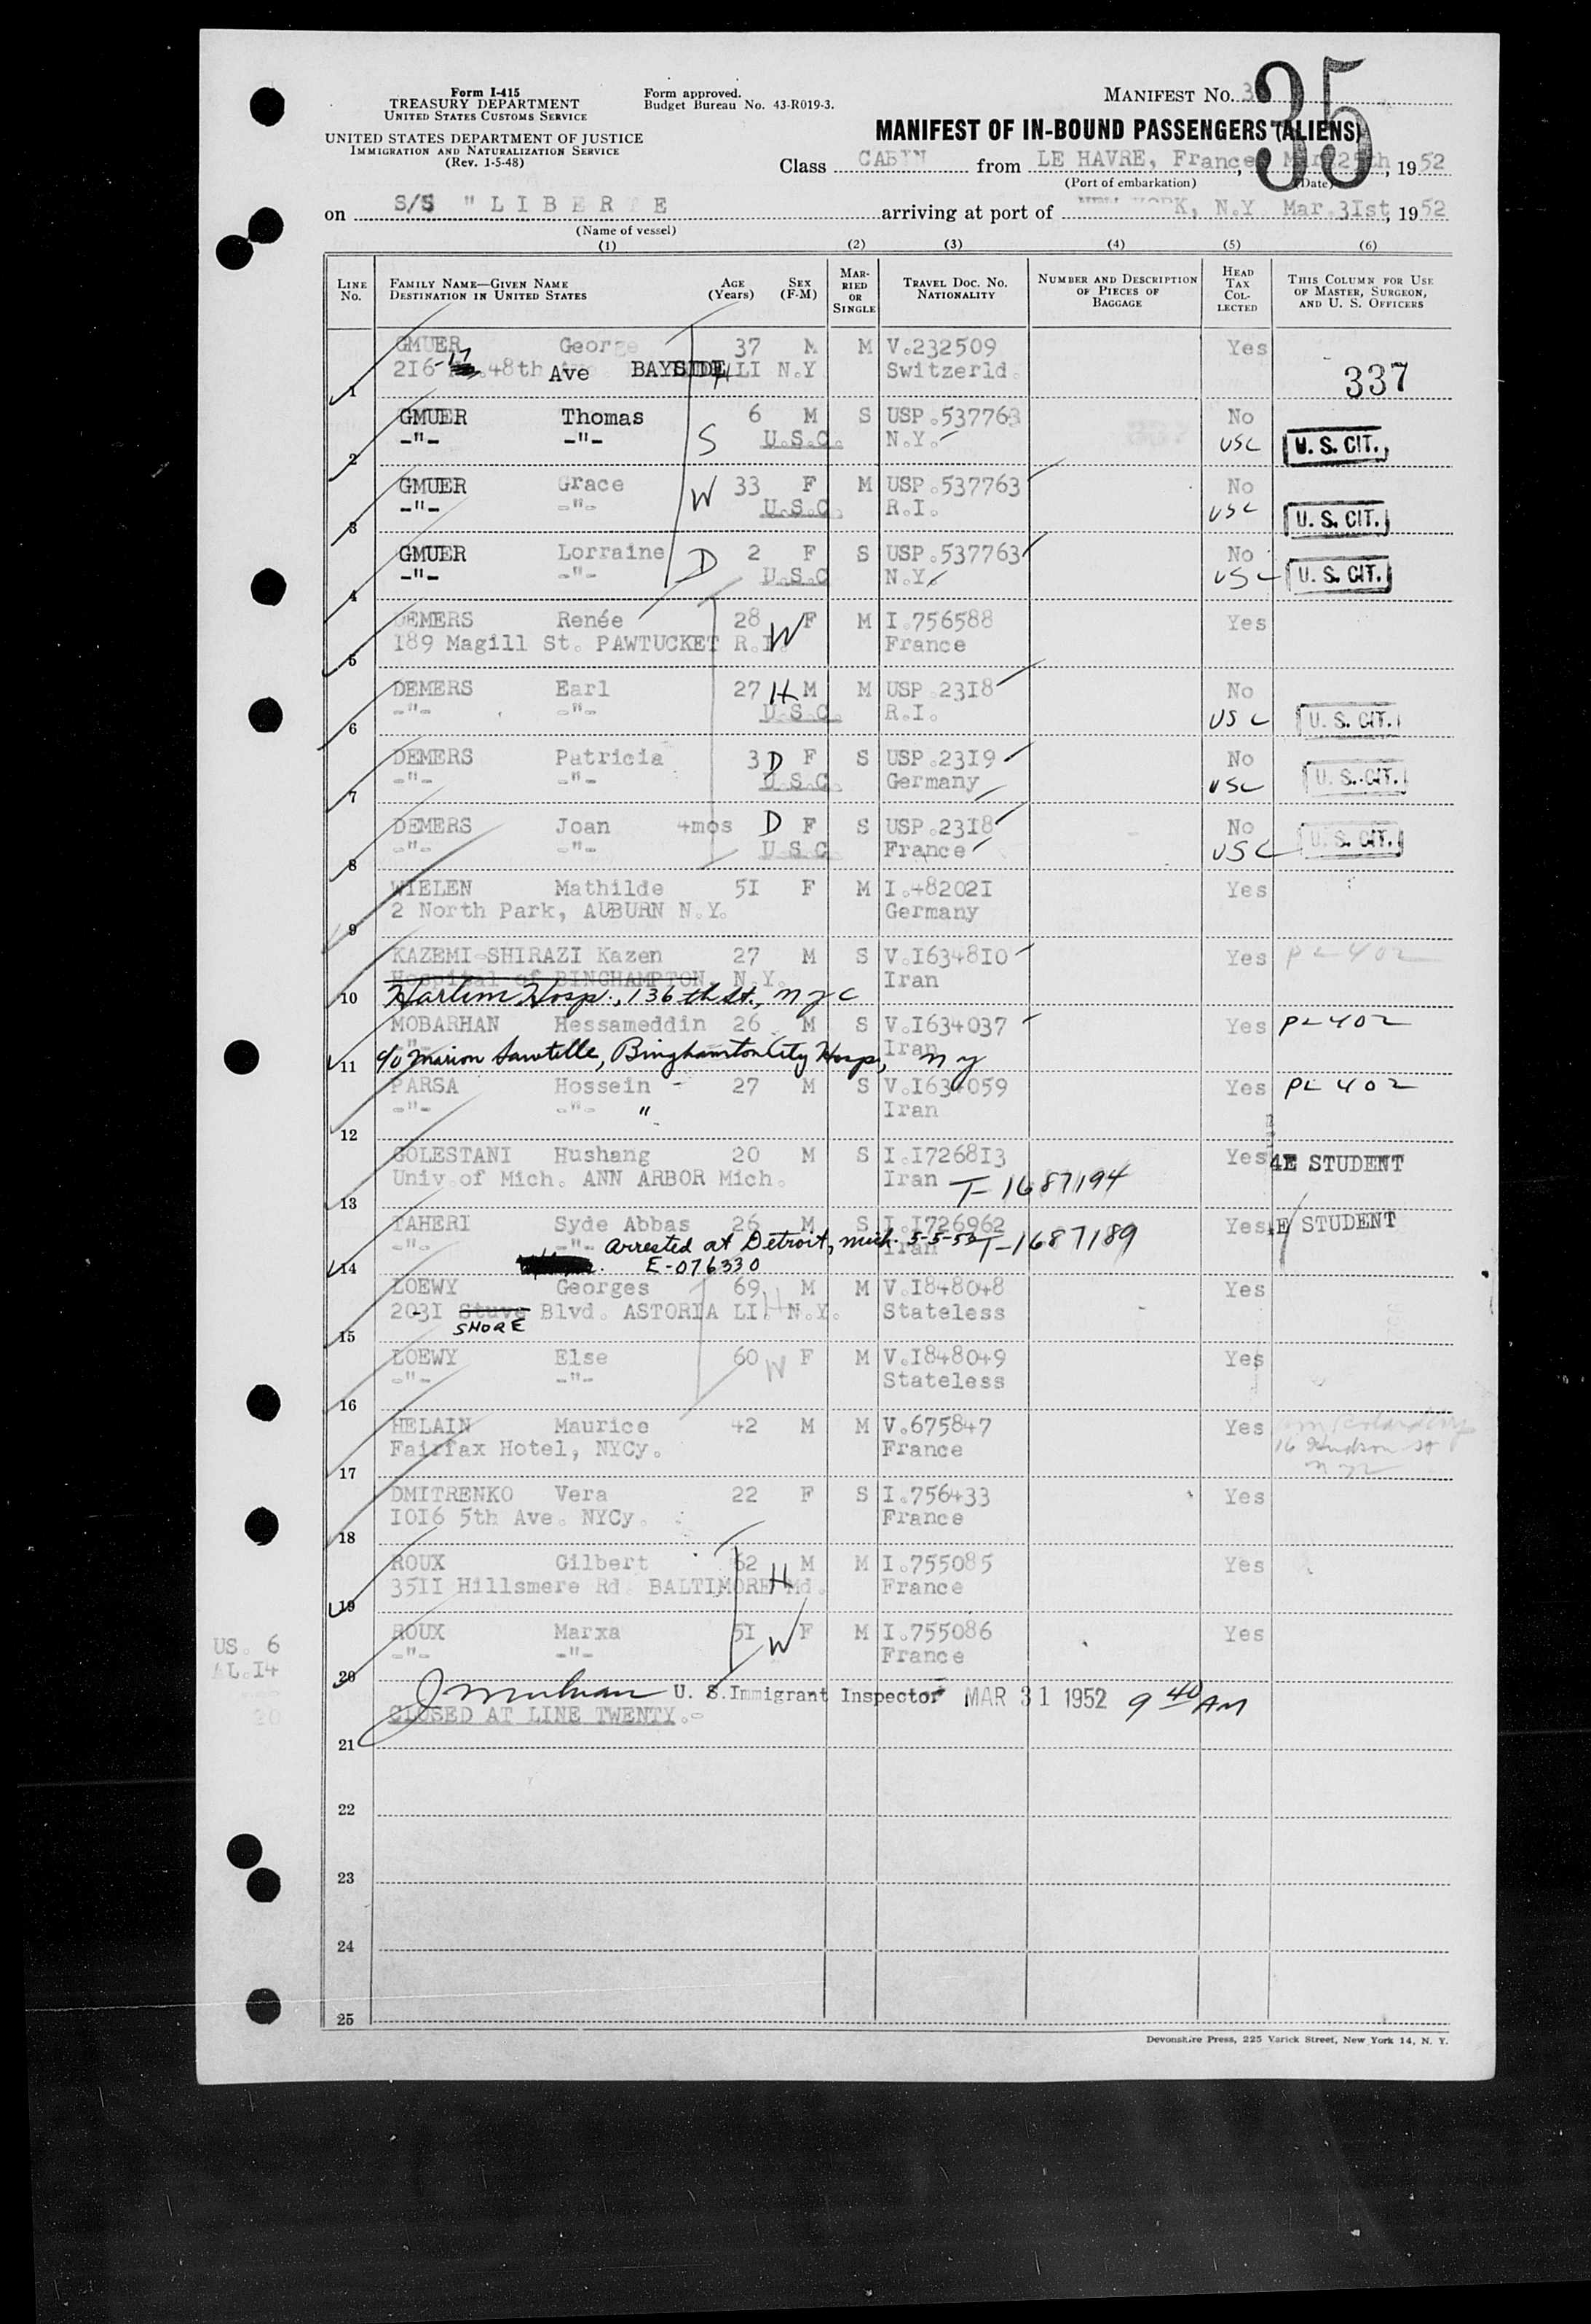 Form I-415
TREASURY DEPARTMENT
UNITED STATES CUSTOMS SERVICE
UNITED STATES DEPARTMENT OF JUSTICE
IMMIGRATION AND NATURALIZATION SERVICE
(Rev. 1-5-48)
Form approved.
Budget Bureau No. 43-R019-3.
MANIFEST NO. 3
35
MANIFEST OF IN-BOUND PASSENGERS (ALIENS)
Class CABIN from LE HAVRE, France, Mar 25th, 1952
(Port of embarkation) (Date)
on S/S "LIBERTE arriving at port of NEW YORK, N.Y. Mar.3Ist, 1952
(Name of vessel)
(1) (2) (3) (4) (5) (6)
LINE No. FAMILY NAME—GIVEN NAME DESTINATION IN UNITED STATES AGE (Years) SEX (F-M) MARRIED OR SINGLE TRAVEL DOC. NO. NATIONALITY NUMBER AND DESCRIPTION OF PIECES OF BAGGAGE HEAD TAX COLLECTED THIS COLUMN FOR USE OF MASTER, SURGEON, AND U. S. OFFICERS
GMUER George 37 M M V.232509 Yes
216-17 48th Ave BAYSIDE LI N.Y Switzerld. 337
1
GMUER Thomas 6 M S USP.537763 No
-"- -"- S U.S.C. N.Y. USC U. S. CIT.
2
GMUER Grace W 33 F M USP.537763 No
-"- -"- U.S.C. R.I. USC U. S. CIT.
3
GMUER Lorraine D 2 F S USP.537763 No
-"- -"- U.S.C N.Y. USC U. S. CIT.
4
DEMERS Renée 28 W F M I.756588 Yes
189 Magill St. PAWTUCKET R.I. France
5
DEMERS Earl 27 H M M USP.23I8 No
-"- -"- U.S.C. R.I. USC U. S. CIT.
6
DEMERS Patricia 3 D F S USP.23I9 No
-"- -"- U.S.C. Germany USC U. S. CIT.
7
DEMERS Joan 4mos D F S USP.23I8 No
-"- -"- U S C France USC U. S. CIT.
8
WIELEN Mathilde 5I F M I.48202I Yes
2 North Park, AUBURN N.Y. Germany
9
KAZEMI-SHIRAZI Kazen 27 M S V.I6348I0 Yes PL 402
Hospital of BINGHAMPTON, N.Y. Iran
10 Harlem Hosp., 136th St., NYC
MOBARHAN Hessameddin 26 M S V.I634037 Yes PL 402
-"- Iran
11 c/o Marion Sawtelle, Binghamton City Hosp, N Y
PARSA Hossein 27 M S V.I634059 Yes PL 402
-"- -"- " Iran
12
GOLESTANI Hushang 20 M S I.I7268I3 Yes 4E STUDENT
Univ.of Mich. ANN ARBOR Mich. Iran T-1687194
13
TAHERI Syde Abbas 26 M S I.I726962 Yes 4E STUDENT
-"- -"- Arrested at Detroit, Mich. 5-5-53 Iran T-1687189
14 E-076330
LOEWY Georges 69 M M V.I848048 Yes
203I Stuve Blvd. ASTORIA LI. H N.Y. Stateless
15 SHORE
LOEWY Else 60 W F M V.I848049 Yes
-"- -"- Stateless
16
HELAIN Maurice 42 M M V.675847 Yes
Fairfax Hotel, NYCy. France 16 Hudson St
17 NYC
DMITRENKO Vera 22 F S I.756433 Yes
I0I6 5th Ave. NYCy. France
18
ROUX Gilbert 62 M M I.755085 Yes
35II Hillsmere Rd. BALTIMORE H Md. France
19
ROUX Marxa 5I W F M I.755086 Yes
-"- -"- France
20
US. 6
AL.I4
20
U. S. Immigrant Inspector MAR 31 1952 9 40 AM
CLOSED AT LINE TWENTY.-
21
22
23
24
25
Devonshire Press, 225 Varick Street, New York 14, N. Y.